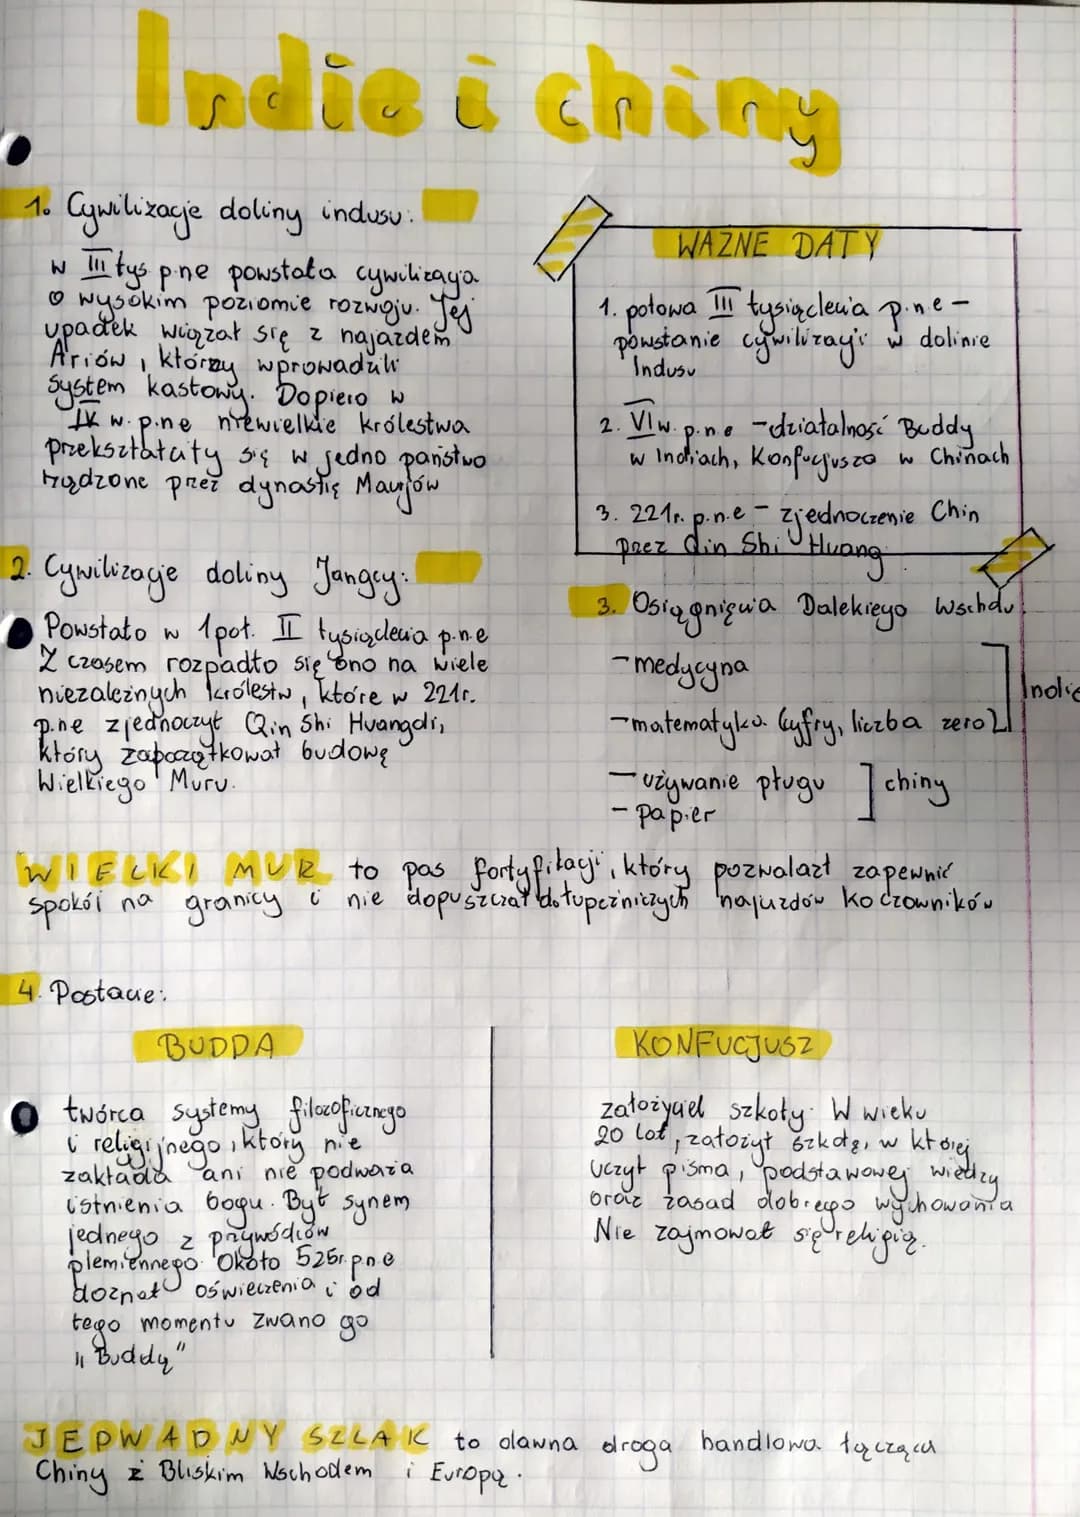 Indie i chiny
1. Cywilizacje doliny indusu:
w III tys p.ne powstała cywilizacja
o wysokim poziomie rozwoju. Jej
upadek wiązał się z najazdem
Ariów, którzy wprowadzili
system kastowy. Dopiero w
IV w. p.ne niewielkie królestwa
przekształciły się w jedno państwo
rządzone przez dynastię Maurjów
WAŻNE DATY
1. połowa III tysiąclecia p.n.e -
powstanie cywilizacji w dolinie
Indusu
2. VI w. p.n.e - działalność Buddy
w Indiach, Konfucjusza w Chinach
3. 221r. p.n.e - zjednoczenie Chin
przez Qin Shi Huang
2. Cywilizacje doliny Jangcy:
Powstało w 1 poł. II tysiąclecia p.n.e
Z czasem rozpadło się ono na wiele
niezależnych królestw, które w 221r.
p.ne zjednoczył Qin Shi Huangdi,
który zapoczątkował budowę
Wielkiego Muru.
3. Osiągnięcia Dalekiego Wschdu:
- medycyna
- matematyka (cyfry, liczba zero)
Indie
- używanie pługu
- papier
chiny
WIELKI MUR to pas fortyfikacji, który pozwalał zapewnić
spokój na granicy i nie dopuszczał do łupeżniczych najazdów koczowników
4. Postacie:
BUDDA
twórca systemy filozoficznego
i religijnego, który nie
zakłada ani nie podważa
istnienia bogu. Był synem
jednego z przywódców
plemiennego. Około 525r. p.n.e
doznał oświecenia i od
tego momentu zwano go
"Buddą"
KONFUCJUSZ
założyciel szkoły. W wieku
20 lat, założył szkołę, w której
uczył pisma, podstawowej wiedzy
oraz zasad dobrego wychowania
Nie zajmował się religią.
JEDWADNY SZLAK to dawna droga handlowa łącząca
Chiny z Bliskim Wschodem i Europą.